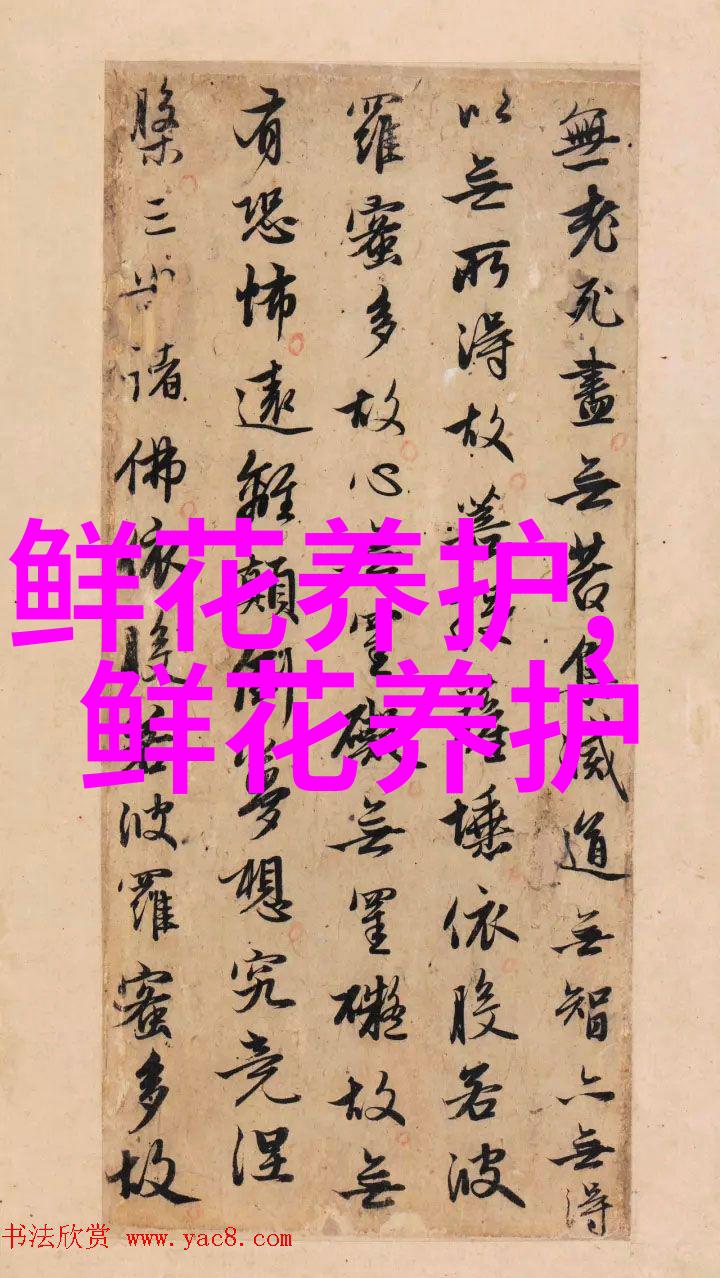 無老死盡無苦集滅道無智亦無得
以無所得故菩提薩埵依般若波
羅蜜多故心無罣礙無罣礙故無
有恐怖遠離顛倒夢想究竟涅
槃三世諸佛依般若波羅蜜多故
鲜花养护,
鲜花养护
书法欣赏 www.yac8.com